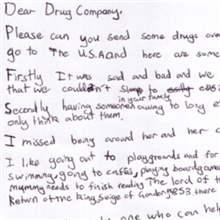 Dear Drug Company.
Please can you send some drugs over
go to The U.S.A and here are some
Firstly It was sad and bad and we
that we couldn't
Secondly having someone in your family owing to long
only think about them.
I missed being around her and her
I like going out to playgrounds and for
swimming, going to cafes, playing board games
mummy needs to finish reading The lord of
Return of the king, Seige of Gondor, 853 there
one who can help